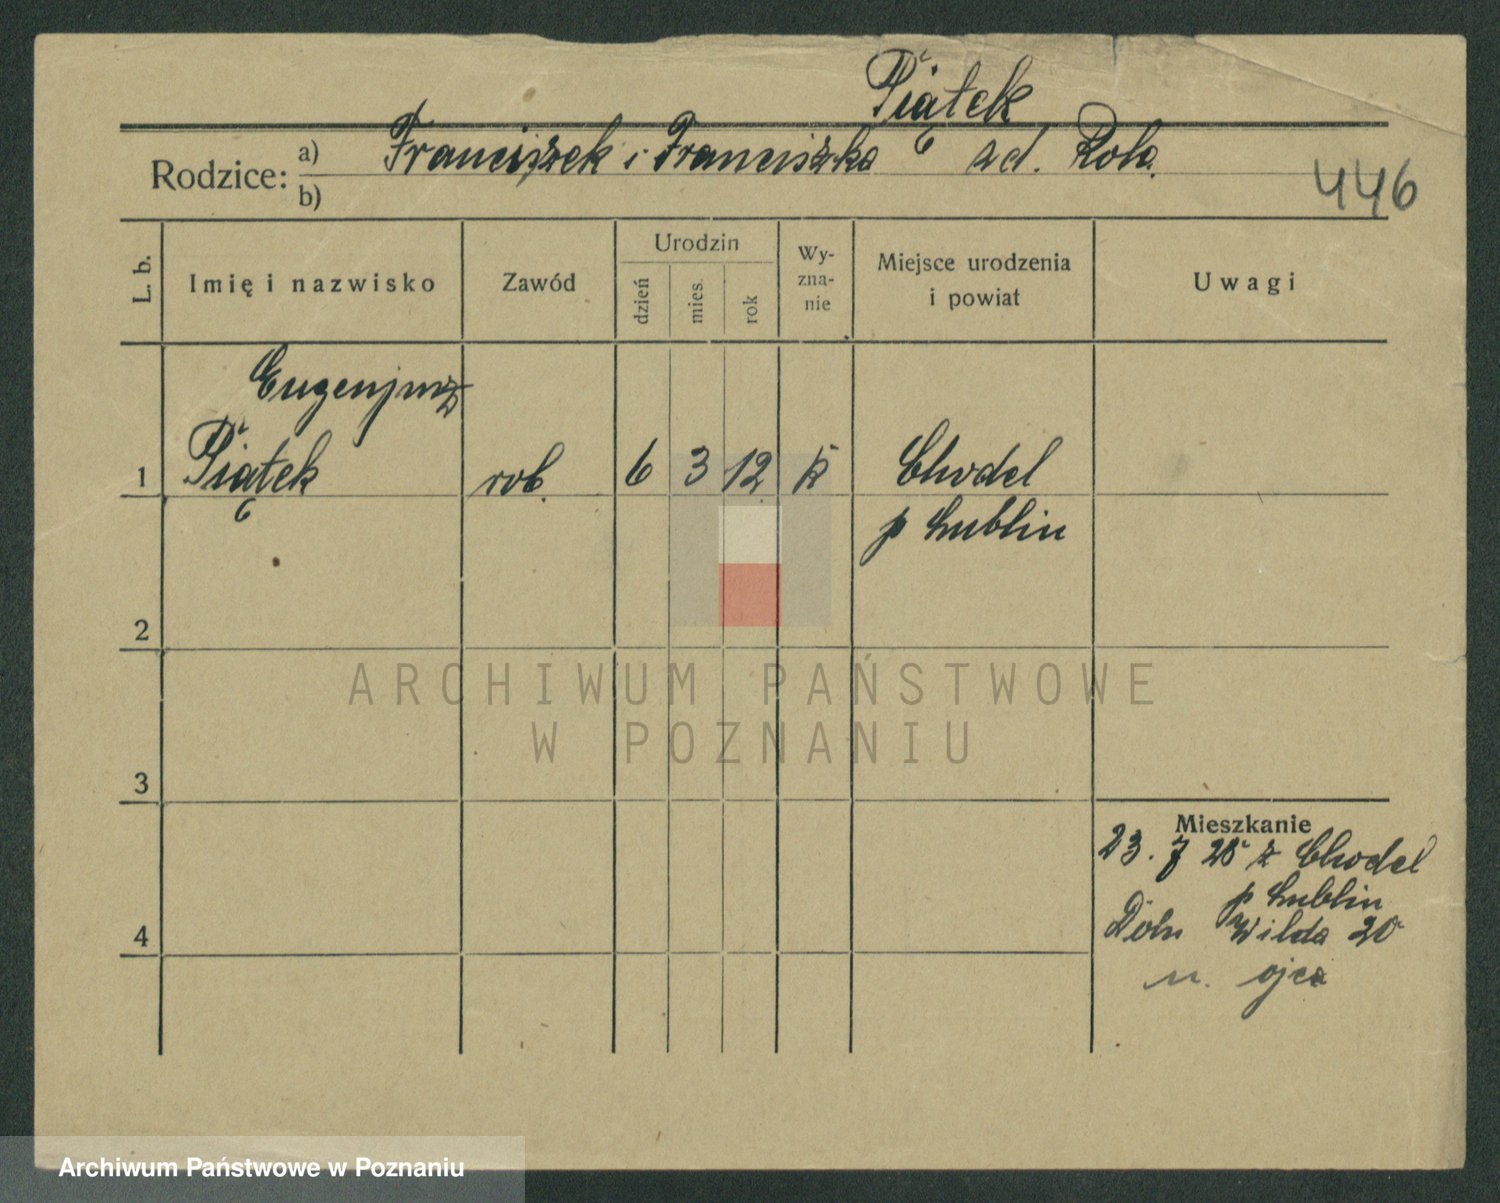 Piątek
Rodzice: a) Franciszek i Franciszka zd. Rola.
b)
446
L. b. Imię i nazwisko Zawód Urodzin dzień mies. rok Wy-zna-nie Miejsce urodzenia i powiat Uwagi
Eugenjusz
1 Piątek rob. 6 3 12 k Chodel
p Lublin
2
3
Mieszkanie
23. 7 25 z Chodel
p Lublin
4 Doln Wilda 20
u. ojca
ARCHIWUM PAŃSTWOWE
W POZNANIU
Archiwum Państwowe w Poznaniu